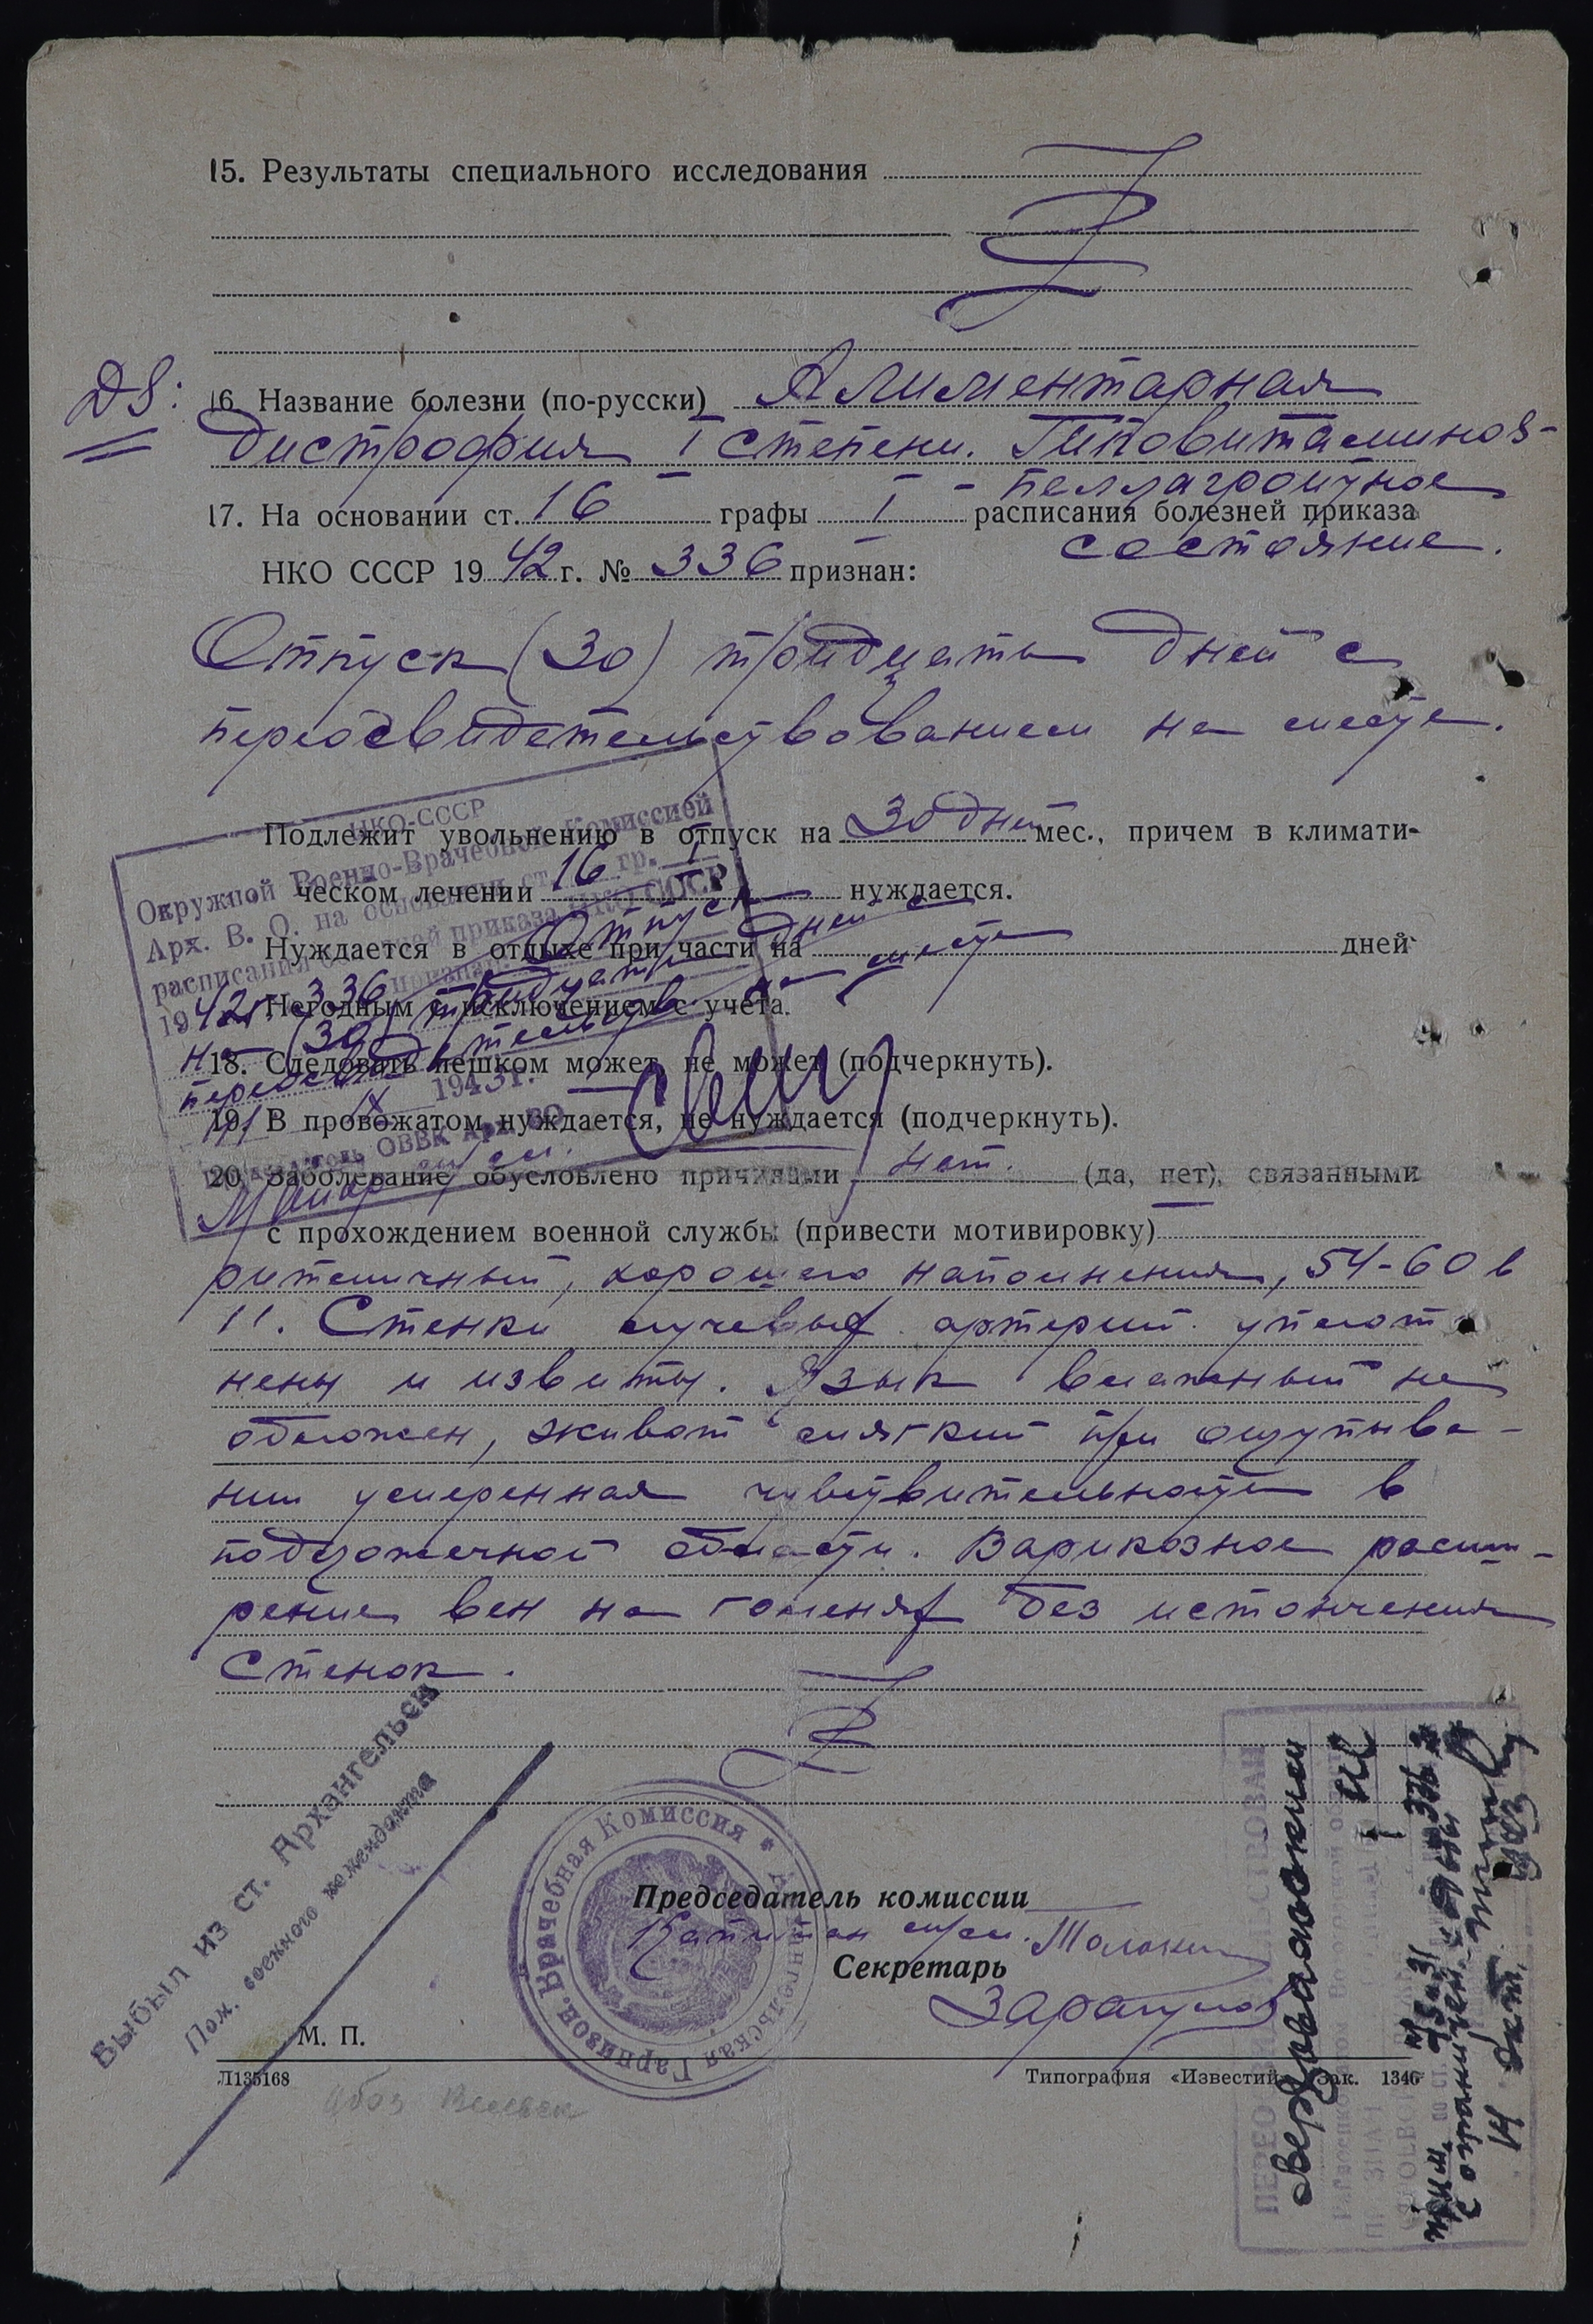 15. Результаты специального исследования
DS: 16. Название болезни (по-русски) Алиментарная
дистрофия I степени. Гиповитаминоз-
- пеллагроидное
17. На основании ст. 16 графы I расписания болезней приказа
состояние.
НКО СССР 1942 г. № 336 признан:
Отпуск (30) тридцать дней с
переосвидетельствованием на месте.
Подлежит увольнению в отпуск на 30 дней мес., причем в климати-
ческом лечении нуждается.
Нуждается в отдыхе при части на дней
Негодным с исключением с учета.
18. Следовать пешком может, не может (подчеркнуть).
19. В провожатом нуждается, не нуждается (подчеркнуть).
20. Заболевание обусловлено причинами нет. (да, нет), связанными
с прохождением военной службы (привести мотивировку)
НКО-СССР
Окружной Военно-Врачебной Комиссией
Арх. В. О. на основании ст. 16 гр. I
расписания болезней приказа НКО СССР
1942 г. 336 признан: Отпуск
на (30) тридцать дней с
переосвидетельств. на месте
IX 1943 г.
Председатель ОВВК Арх. ВО
Майор м/сл.
ритмичный, хорошего наполнения, 54-60 в
1'. Стенки лучевых артерий уплот
нены и извиты. Язык влажный не
обложен, живот мягкий при ощупыва-
нии умеренная чувствительность в
подложечной области. Варикозное расши-
рение вен на голенях без истончения
стенок.
Выбыл из ст. Архангельск
Пом. военного коменданта
Архангельская Гарнизон. Врачебная Комиссия
Председатель комиссии
Капитан м/сл.
Секретарь
М. П.
Л135168
Типография «Известий» Зак. 1346